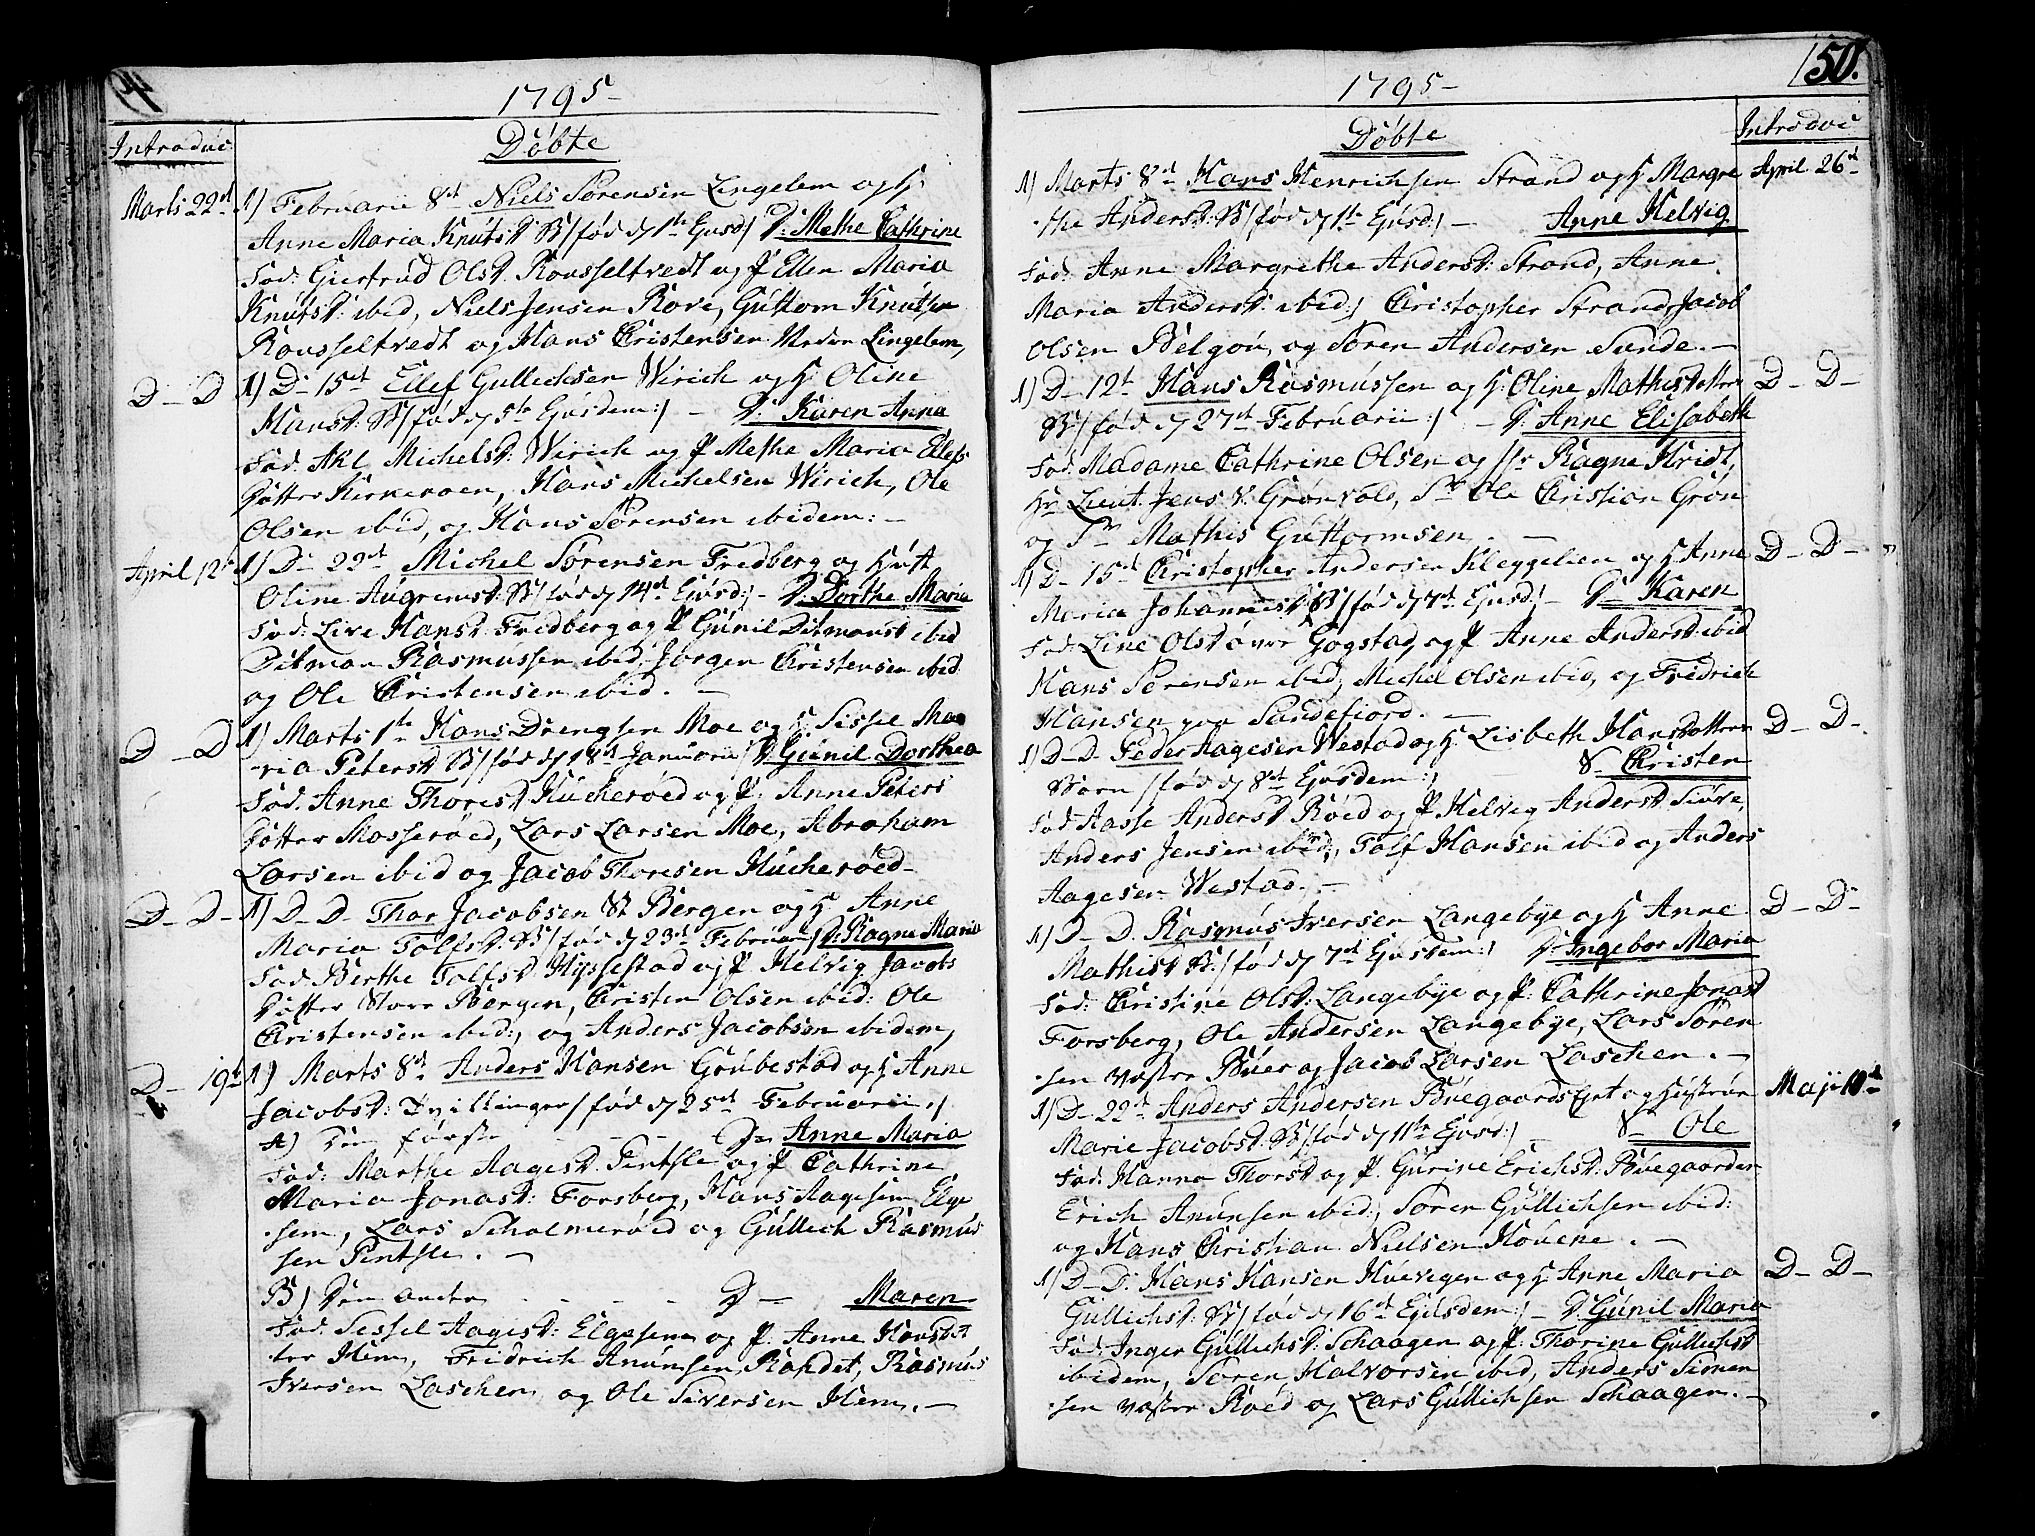 4
1795
Introduc:
Döbte
Marts 22d
1) Februarii 8d Niels Sørensen Lingelem og H
Anne Maria Knutsd B/ fød d 1te Ejusd/ D: Methe Cathrine
Fad: Giertrud Olsd. Rousseltvedt og P Ellen Maria
Knutsd: ibid, Niels Jensen Rove, Guttorm Knutsen
Rousseltvedt og Hans Christensen Neden Lingelem,
D_ D
1) D- 15d Ellef Gullichsen Wirich og H: Oline
Hansd: B/ fød d 5te Ejusdem:/ - D: Karen Anna
Fad: Michelsd: Wirich og P Methe Maria Ellefs
Dotter Kirkeroen, Hans Michelsen Wirich, Ole
Olsen ibid, og Hans Sørensen ibidem: -
April 12t
1) D- 22d Michel Sørensen Fredberg og Hust
Oline Augrimsd: B/ fød d 14d Ejusd:/ - D: Dorthe Maria
Fad: Live Hansd: Fredberg og P Gunil Ditmansd ibid
Ditman Rasmussen ibid, Jørgen Christensen ibid
og Ole Christensen ibid. -
D_ D
1) Marts 1te Hans Drengsen Moe og H: Sissel Ma
ria Petersd B/ fød d 18d Januarii/ D Gunil Dorthea
Fad: Anne Thoresd Hucherøed og P: Anne Peters
Dotter Mosserøed, Lars Larsen Moe, Abraham
Larsen ibid og Jacob Thoresen Hucherøed-
D_ D_
1) D_ D_ Thor Jacobsen St Bergen og H Anne
Maria Tolfsd: B/ fød d 23d Februarii/ D: Ragne Maria
Fad: Berthe Tolfsd Hyssestad og P Helvig Jacobs
Dotter Store Bergen, Christen Olsen ibid: Ole
Christensen ibid:, og Anders Jacobsen ibidem,
D_ 19d
1) Marts 8d Anders Hansen Grubestad og H Anne
Jacobsd: Tvillinger/ fød d 25d Februarii:/
A) Den første - - - D- Anne Maria
Fad: Marthe Aagesd. Pintsle og P Cathrine
Maria Jonasd: Forsberg, Hans Aagesen Elge
sem, Lars Scholmerøed og Gullich Rasmus
sen Pintsle. -
B) Den andre - - - - D- Maren
Fad: Sessel Aagesd: Elgesem og P. Anne Hansdot
ter Hem, Fridrich Anunsen Randet, Rasmus
Iversen Laschen og Ole Siversen Hem. -
150.
1795
Döbte
Introduc
1) Marts 8d Hans Henrichsen Strand og H Margre
April 26d
the Andersd: B/ fød d 1te Ejusd:/ - Anne Helvig
Fad: Anne Margrethe Andersd: Strand, Anne
Maria Andersd: ibid:/ Christopher Strand, Jacob
Olsen Belgou, og Søren Andersen Sunde. -
1) D- 12t Hans Rasmussen og H: Oline Mathisdotter
D_ D_
B/ fød d 27d Februarii:/ - D: Anne Elisabeth
Fad: Madame Cathrine Olsen og Ragne
Hr Lieut. Jens v. Grønvold, Sr Ole Christian Grøn
og Sr Mathis Guttormsen. -
1) D- 15d Christopher Andersen Kleggelien og H Anne
D_ D_
Maria Johannesd B/ fød d 7d Ejusd:/ - D- Karen
Fad: Line Olsd over Gogstad, og P Anne Andersd: ibid
Hans Sørensen ibid, Michel Olsen ibid, og Fredrich
Hansen paa Sandefiord. -
1) D_ D_ Peder Aagesen Westad og H: Lisbeth Hansdotter
D_ D_
Barn / fød d 8d Ejusdem:/ S- Christen
Fad: Aasse Andersd Røed og P Helvig Andersd: Siøve,
Anders Jensen ibid:, Tolf Hansen ibid og Anders
Aagesen Westad. -
1) D_ D. Rasmus Iversen Langebye og H Anne
D_ D_
Mathisd B:/ fød d 7d Ejusdem:/ D: Ingebor Maria
Fad: Christine Olsd: Langebye og P: Cathrine Jonasd
Forsberg, Ole Andersen Langebye, Lars Søren
sen vestre Buer og Jacob Larsen Laschen. -
1) D- 22d Anders Andersen Buegaards Ejet og Hustrue
Maji 10d
Marie Jacobsd: B/ fød d 11te Ejusd:/ - S- Ole
Fad: Hanna Thorsd og P. Gurine Erichsd: Buegaarder
Erich Anunsen ibid:, Søren Gullichsen ibid:
og Hans Christian Nielsen Houene. -
1) D_ D: Hans Hansen Huevigen og H Anne Maria
D_ D_
Gullichsd: B/ fød d 16d Ejusdem:/ - D. Gunil Maria
Fad: Inger Gullichsd: Schaagen og P: Thorine Gullichsd
ibidem, Søren Halvorsen ibid, Anders Simen
sen vestre Røed og Lars Gullichsen Schaagen. -